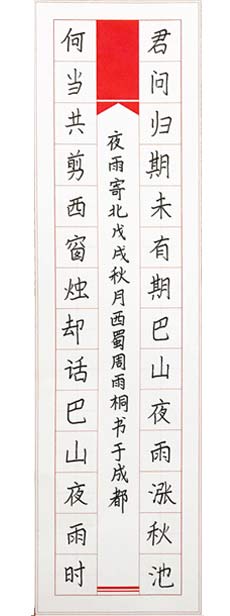 君问归期未有期巴山夜雨涨秋池
何当共剪西窗烛却话巴山夜雨时
夜雨寄北戊戌秋月西蜀周雨桐书于成都